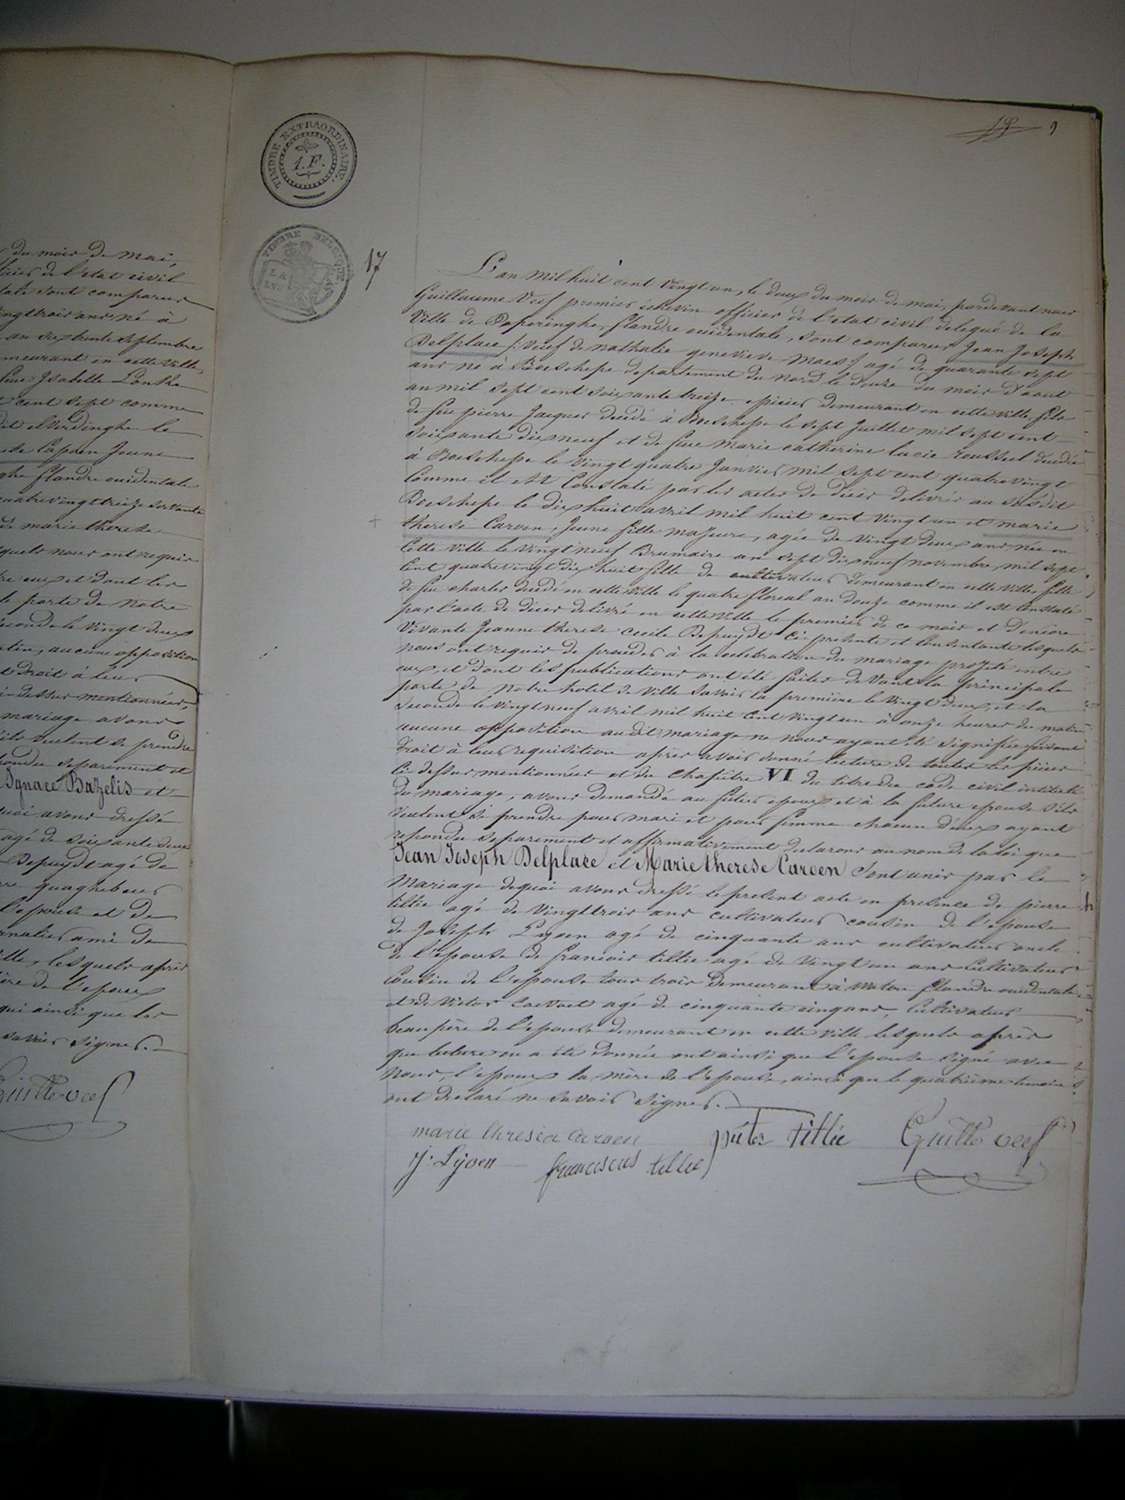 18 9
TIMBRE EXTRAORDINAIRE
1. F.
TIMBRE BELGIQUE
17
du mois de mai,
de l'état civil
sont comparus
vingttrois ans né à
an sept septembre
demeurant en cette ville,
feue Isabelle
cent sept comme
Elverdinghe le
jeune
flandre occidentale
quatrevingttreize servante
de marie therese
lesquels nous ont requis
eux et dont les
porte de notre
seconde le vingt deux
aucune opposition
droit à leur
ci dessus mentionnées
mariage avons
veulent se prendre
repondu separement et
Ignace Bazelis et
quoi avons dressé
agé de soixante deux
Depuydt agé de
Quaghebeur
l'epouse et de
ami de
ville, lesquels après
de l'epoux
qui ainsi que les
savoir signer.
Guille veef
L'an mil huit cent vingt un, le deux du mois de mai, pardevant nous
Guillaume Veef premier échevin officier de l'etat civil delegué de la
Ville de Poperinghe, flandre occidentale, sont comparus Jean Joseph
Delplace, veuf de nathalie genevieve Maes, agé de quarante sept
ans né à Boeschepe departement du Nord le douze du mois d'aout
an mil sept cent soixante treize, epicier demeurant en cette ville, fils
de feu pierre Jacques decédé à Boeschepe le sept Juillet mil sept cent
soixante dix neuf et de feue marie catherine lucie Roussel decedée
à Boeschepe le vingt quatre Janvier mil sept cent quatre vingt
Comme il est Constaté par les actes de decès delivrés au susdit
Boeschepe le dix huit avril mil huit cent vingt un et marie
therese Caroen, Jeune fille majeure, agée de vingt deux ans née en
Cette ville le vingt neuf Brumaire an sept dix neuf novembre, mil sept
Cent quatre vingt dix huit fille de cultivateur demeurant en cette ville, fille
de feu charles decédé en cette ville le quatre floreal an douze comme il est Constaté
par l'acte de decès delivré en cette ville le premier de ce mois et d'encore
Vivante Jeanne therese cecile Depuydt Ci presente et Consentante lesquels
nous ont requis de proceder à la celebration du mariage projeté entre
eux et dont les publications ont été faites devant la principale
porte de notre hotel de Ville savoir la première le vingt deux et la
seconde le vingt neuf avril mil huit Cent vingt un à onze heures du matin
aucune opposition audit mariage ne nous ayant été signifiée faisant
droit à leur requisition apres avoir donné lecture de toutes les pièces
ci dessus mentionnées et du chapitre VI du titre du code civil intitulé
du mariage, avons demandé au futur epoux et à la future epouse s'ils
Veulent se prendre pour mari et pour femme chacun d'eux ayant
repondu separement et affirmativement declarons au nom de la loi que
Jean Joseph Delplace et Marie therese Caroen sont unis par le
Mariage dequoi avons dressé le present acte en presence de pierre
tillie agé de vingttrois ans cultivateur cousin de l'epouse
de Joseph Lyoen agé de cinquante ans cultivateur oncle
de l'epouse de francois tillie agé de vingt un ans Cultivateur
Cousin de l'epouse tous trois demeurans à Watou flandre occidentale
et de Victor agé de cinquante cinq ans, Cultivateur
beaupère de l'epouse demeurant en cette ville lesquels après
que lecture en a été donnée ont ainsi que l'epouse signé avec
Nous, l'epoux la mère de l'epouse, ainsi que le quatrième temoin
ont declaré ne savoir signer.
marie theresia caroen pieter tillie Guille veef
J: Lyoen franciscus tillie